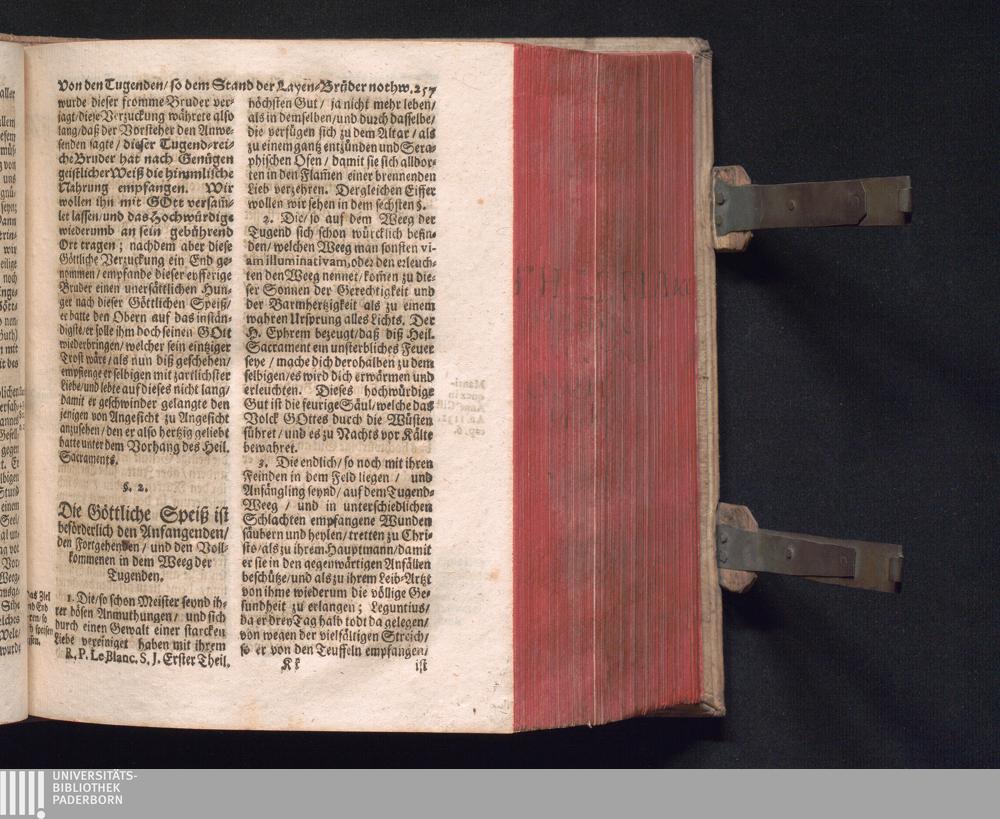 Von den Tugenden/ so dem Stand der Layen-Brüder nothw. 257
wurde dieser fromme Bruder ver-
jagt/ diese Verzuckung währete also
lang/ daß der Vorsteher den Anwe-
senden sagte/ dieser Tugend-rei-
che Bruder hat nach Genügen
geistlicher Weiß die himmlische
Nahrung empfangen. Wir
wollen ihn mit GOtt versam̃-
let lassen/ und das Hochwürdige
wiederumb an sein gebührend
Ort tragen; nachdem aber diese
Göttliche Verzuckung ein End ge-
nommen/ empfande dieser eyfferige
Bruder einen unersättlichen Hun-
ger nach dieser Göttlichen Speiß/
er batte den Obern auf das instän-
digste/ er solle ihm doch seinen GOtt
wiederbringen/ welcher sein eintziger
Trost wäre/ als nun diß geschehen/
empfienge er selbigen mit zartlichster
Liebe/ und lebte auf dieses nicht lang/
damit er geschwinder gelange den
jenigen von Angesicht zu Angesicht
anzusehen/ den er also hertzig geliebt
hatte unter dem Vorhang des Heil.
Sacraments.
§. 2.
Die Göttliche Speiß ist
beförderlich den Anfangenden/
den Fortgehenden/ und den Voll-
kommenen in dem Weeg der
Tugenden.
1. Die/ so schon Meister seynd ih-
rer bösen Anmuthungen/ und sich
durch einen Gewalt einer starcken
Liebe vereiniget haben mit ihrem
R. P. Le Blanc. S. J. Erster Theil.
höchsten Gut/ ja nicht mehr leben/
als in demselben/ und durch dasselbe/
die verfügen sich zu dem Altar/ als
zu einem gantz entzünden und Sera-
phischen Ofen/ damit sie sich alldor-
ten in den Flam̃en einer brennenden
Lieb verzehren. Dergleichen Eiffer
wollen wir sehen in dem sechsten §.
2. Die/ so auf dem Weeg der
Tugend sich schon würcklich befin-
den/ welchen Weeg man sonsten vi-
am illuminativam, oder den erleuch-
ten den Weeg nennet/ kom̃en zu die-
ser Sonnen der Gerechtigkeit und
der Barmhertzigkeit als zu einem
wahren Ursprung alles Lichts. Der
H. Ephrem bezeugt/ daß diß Heil.
Sacrament ein unsterbliches Feuer
seye/ mache dich derohalben zu dem
selbigen/ es wird dich erwärmen und
erleuchten. Dieses hochwürdige
Gut ist die feurige Säul/ welche das
Volck GOttes durch die Wüsten
führet/ und es zu Nachts vor Kälte
bewahret.
3. Die endlich/ so noch mit ihren
Feinden in dem Feld liegen/ und
Anfängling seynd/ auf dem Tugend-
Weeg/ und in unterschiedlichen
Schlachten empfangene Wunden
säubern und heylen/ tretten zu Chri-
sto/ als zu ihrem Hauptmann/ damit
er sie in den gegenwärtigen Anfällen
beschütze/ und als zu ihrem Leib-Artzt
von ihme wiederum die völlige Ge-
sundheit zu erlangen; Leguntius/
da er drey Tag halb todt da gelegen/
von wegen der vielfältigen Streich/
so er von den Teuffeln empfangen/
Kk ist
UNIVERSITÄTS-
BIBLIOTHEK
PADERBORN